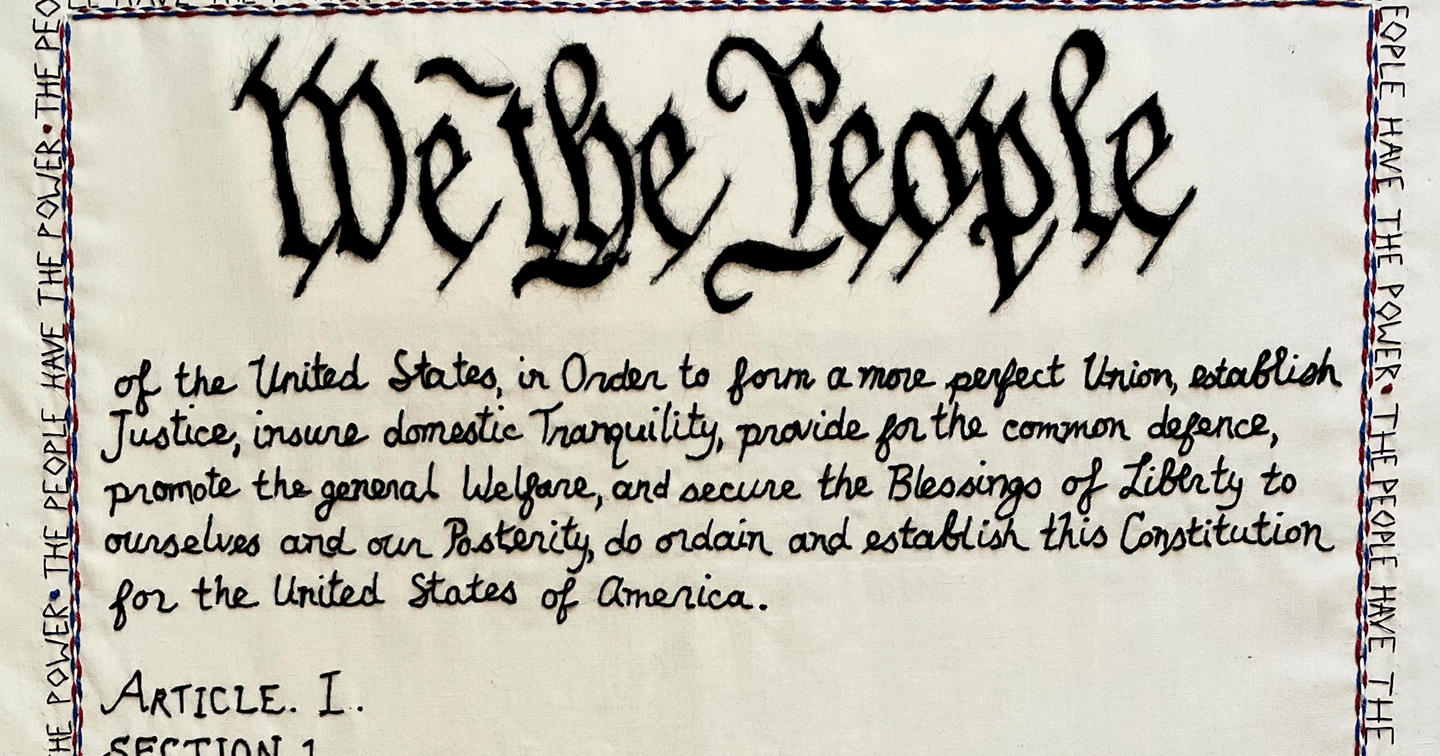 LE HAVE THE POWER
We the People
of the United States, in Order to form a more perfect Union, establish
Justice, insure domestic Tranquility, provide for the common defence,
promote the general Welfare, and secure the Blessings of Liberty to
ourselves and our Posterity, do ordain and establish this Constitution
for the United States of America.
ARTICLE. I.
SECTION 1
HE POWER • THE PEOPLE HAVE THE POWER • THE PEO
EOPLE HAVE THE POWER • THE PEOPLE HAVE THE